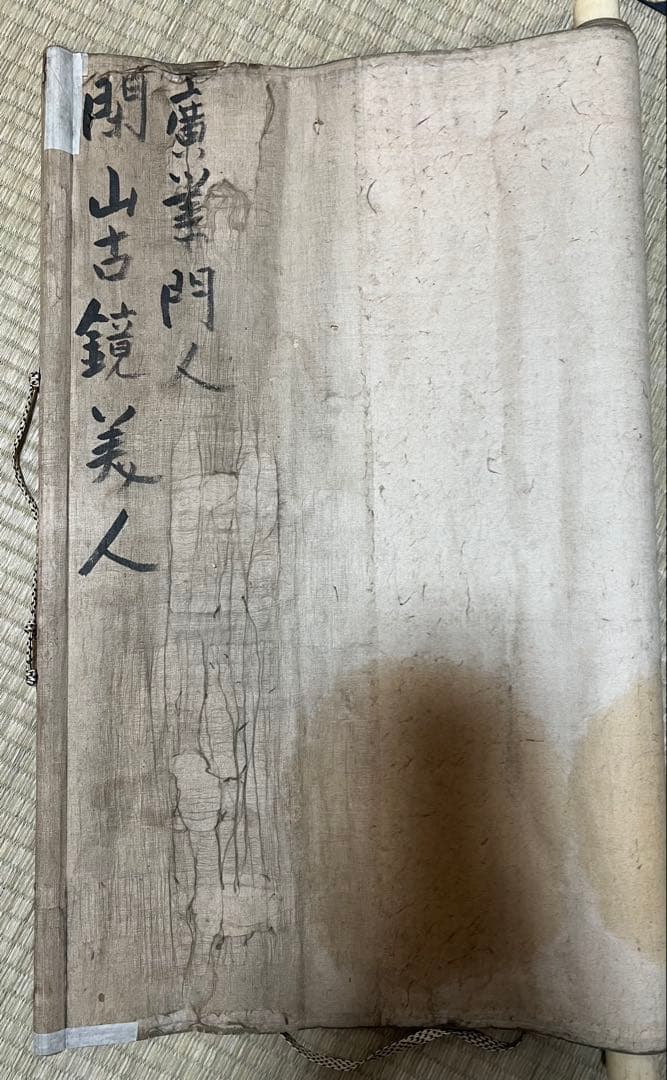 廣業門人
閑山古鏡美人